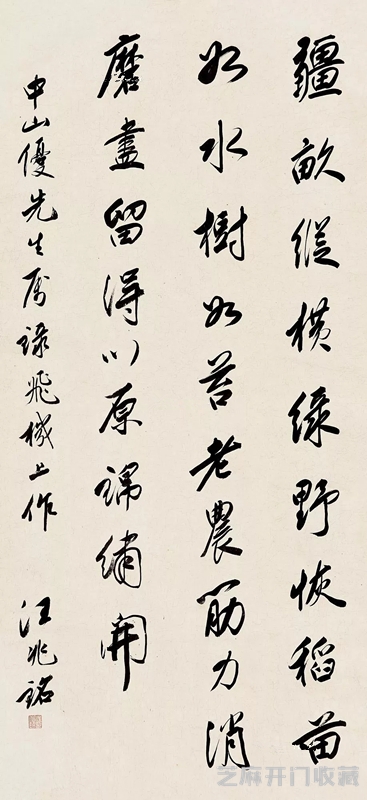 疆畝縱橫綠野恢稻苗
如水樹如苔老農筋力消
磨盡留得川原錦繡開
中山優先生属錄飛機上作 汪兆銘
芝麻开门收藏